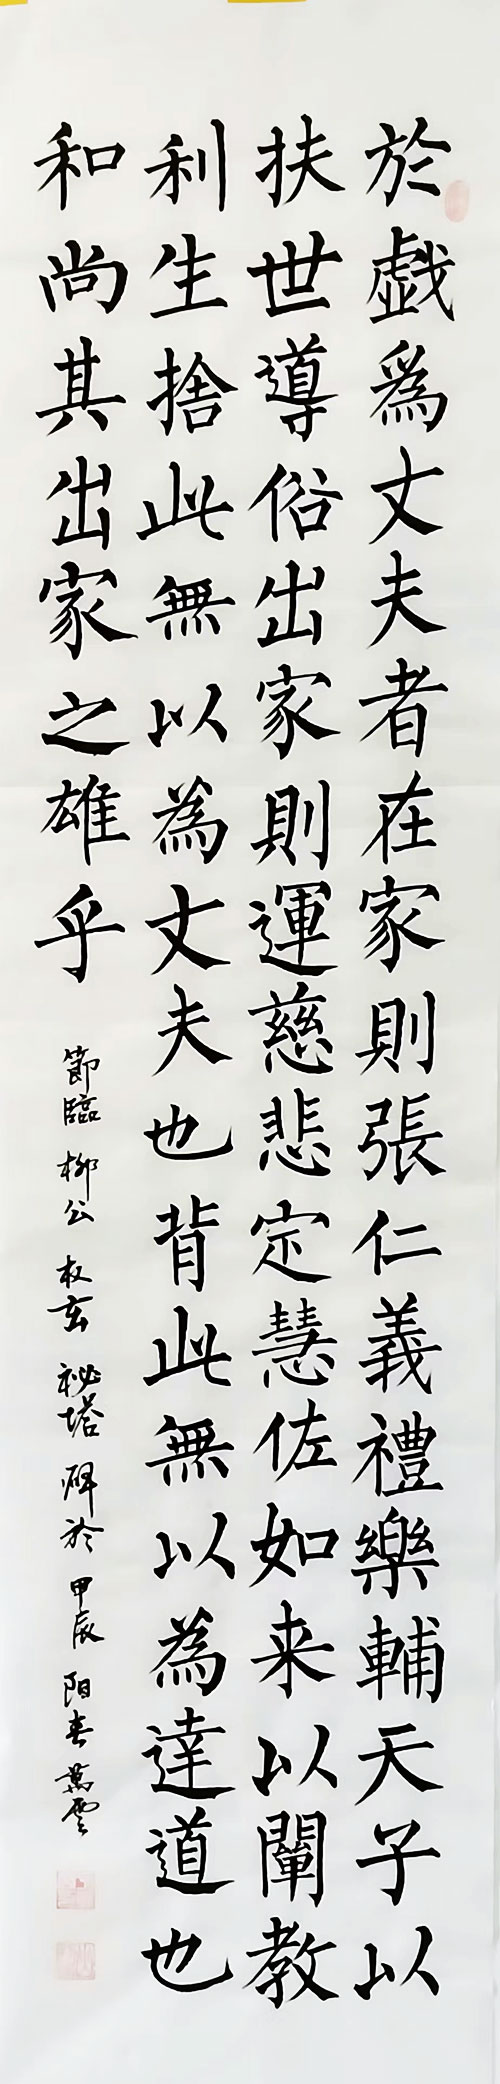 於戯為丈夫者在家則張仁義禮樂輔天子以
扶世導俗出家則運慈悲定慧佐如来以闡教
利生捨此無以為丈夫也背此無以為達道也
和尚其出家之雄乎
節臨柳公权玄祕塔碑於甲辰阳春萬雲